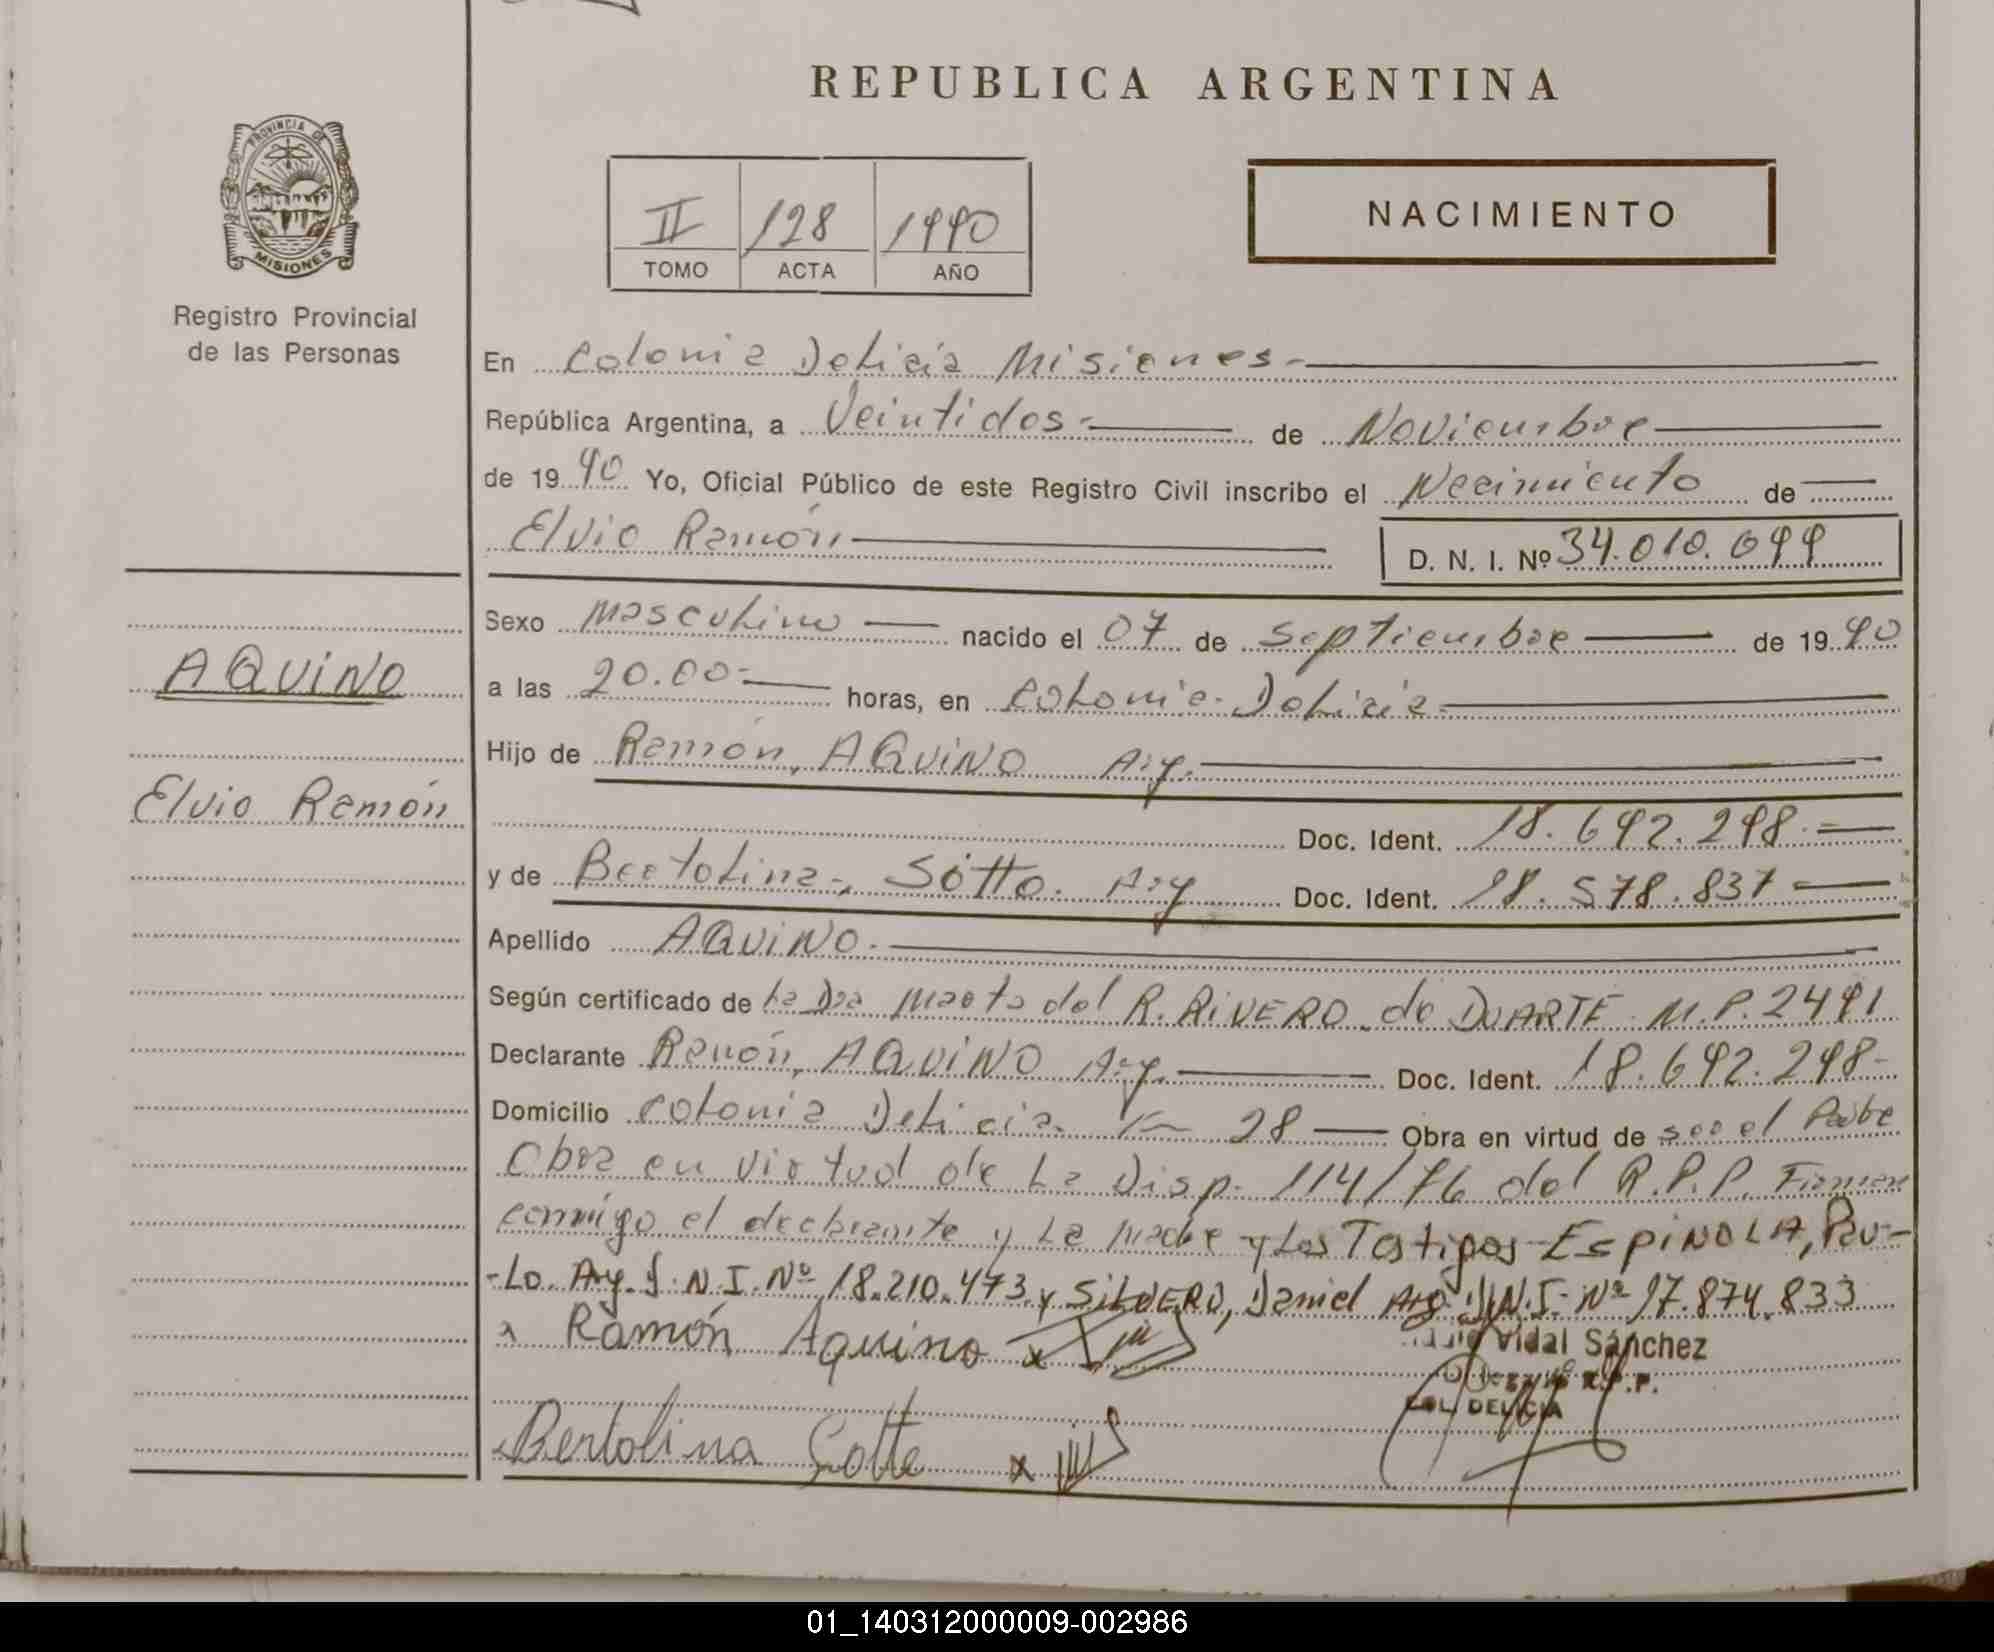 REPUBLICA ARGENTINA
PROVINCIA DE
MISIONES
Registro Provincial
de las Personas
II 128 1990
TOMO ACTA AÑO
NACIMIENTO
En Colonia Delicia Misiones-
República Argentina, a Veintidos- de Noviembre
de 1990 Yo, Oficial Público de este Registro Civil inscribo el Nacimiento de
Elvio Ramón D. N. I. Nº 34.010.099
AQUINO
Elvio Ramón
Sexo masculino nacido el 07 de Septiembre de 1990
a las 20.00- horas, en Colonia Delicia-
Hijo de Ramón, AQUINO Arg.
Doc. Ident. 18.692.298.-
y de Bertolina, Sotto. Arg Doc. Ident. 18.578.837
Apellido AQUINO.
Según certificado de La Dra Marta del R. RIVERO de DUARTE M.P. 2491
Declarante Ramón, AQUINO Arg. Doc. Ident. 18.692.298-
Domicilio Colonia Delicia. Km 28 Obra en virtud de ser el Padre
Obra en virtud de La Disp. 114/76 del R.P.P. Firman
conmigo el declarante y La madre y Los Testigos ESPINOLA, Pau-
-Lo. Arg. D.N.I. Nº 18.210.473 y SILVERO, Daniel Arg. D.N.I. Nº 17.874.833
x Ramón Aquino x
Vidal Sánchez
R.P.P.
COL. DELICIA
Bertolina Sotte x
01_140312000009-002986